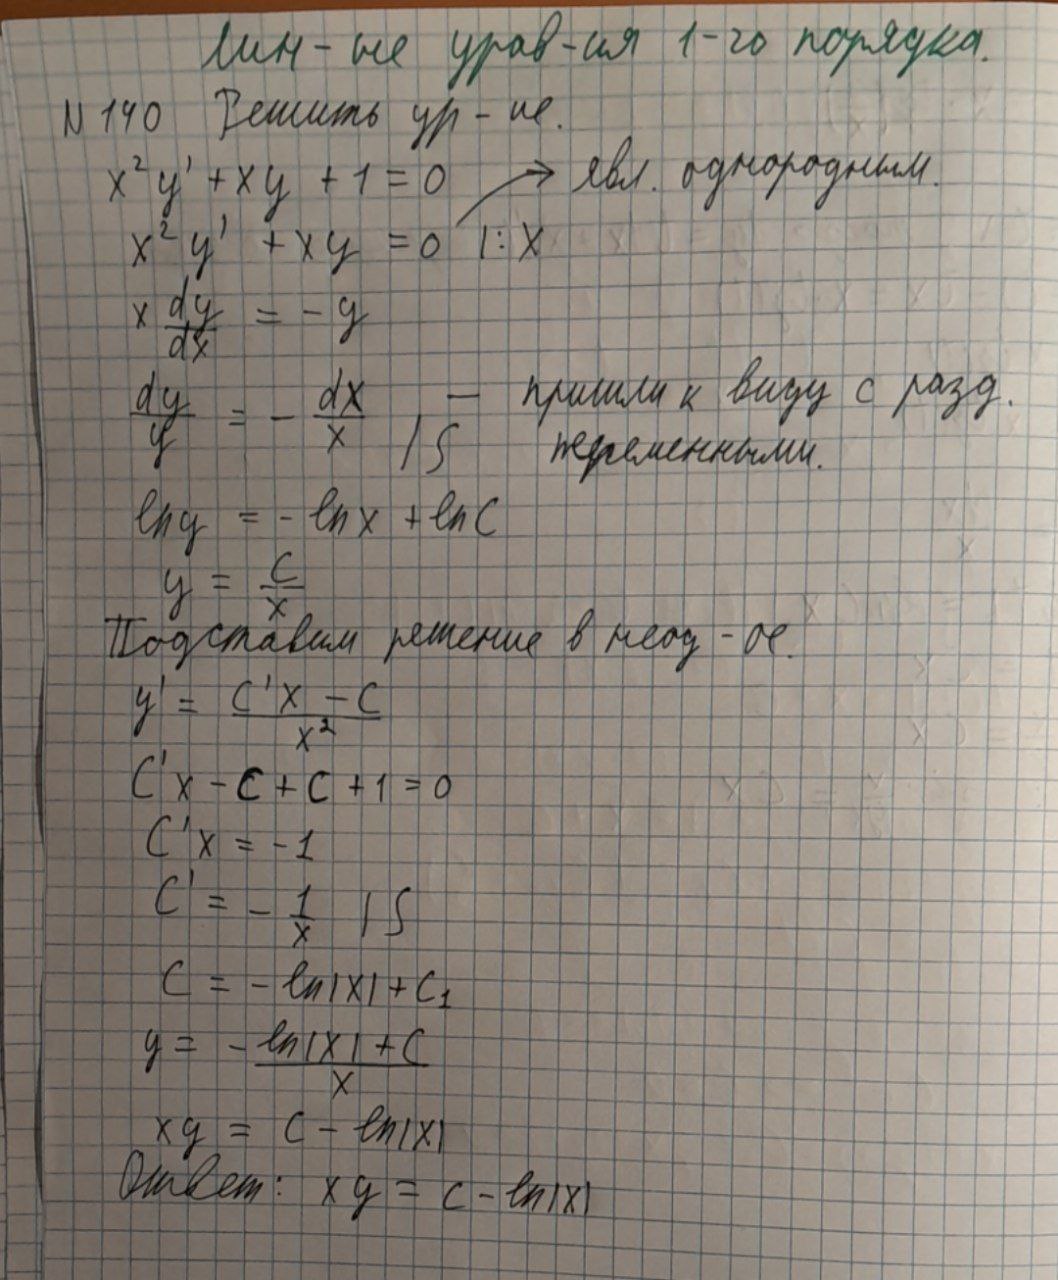 Лин-ые урав-ия 1-го порядка.
N 140 Решить ур-ие.
x² y' + xy + 1 = 0 → явл. однородным.
x² y' + xy = 0 |: x
x dy/dx = - y
dy/y = - dx/x |∫ — пришли к виду с разд.
переменными.
ln y = - ln x + ln C
y = C/x
Подставим решение в неод-ое.
y' = (C'x - C)/x²
C'x - C + C + 1 = 0
C'x = -1
C' = - 1/x |∫
C = - ln|x| + C₁
y = - (ln|x| + C)/x
xy = C - ln|x|
Ответ: xy = C - ln|x|